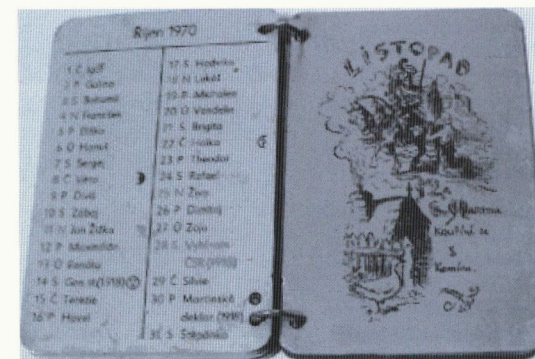 Říjen 1970
1 Č Igor
2 P Galina
3 S Bohumil
4 N František
5 P Eliška
6 Ú Hanuš
7 S Sergej
8 Č Věra
9 P Diviš
10 S Záboj
11 N Jan Žižka
12 P
13 Ú Renáta
14 S Gen.st(1918)
15 Č Terezie
16 P Havel
17 S Hedvika
18 N Lukáš
19 P Michalea
20 Ú Vendelín
21 S Brigita
22 Č
23 P Theodor
24 S Rafael
25 N
26 P Dimitrij
27 Ú Zoja
28 S
ČSR (1918)
29 Č Silvie
30 P Martinská
deklar.(1918)
31 S Štěpánka
LISTOPAD
Martina
kouřívá se
s
komína.